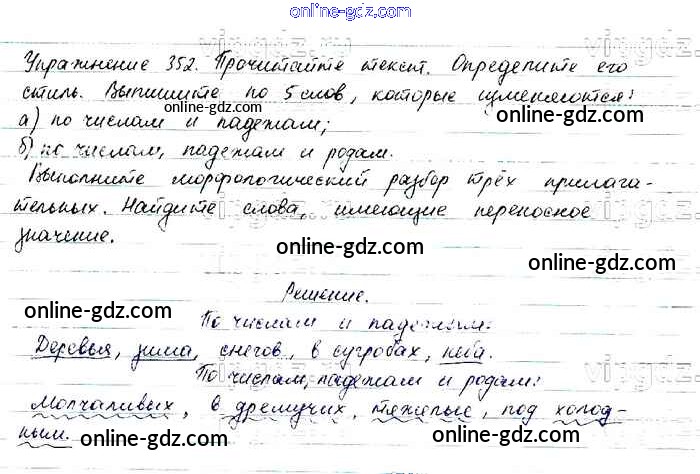 online-gdz.com
Упражнение 352. Прочитайте текст. Определите его
стиль. Выпишите по 5 слов, которые изменяются:
online-gdz.com
online-gdz.com
а) по числам и падежам;
б) по числам, падежам и родам.
online-gdz.com
Выполните морфологический разбор трёх прилага-
тельных. Найдите слова, имеющие переносное
значение.
online-gdz.com
online-gdz.com
Решение.
online-gdz.com
online-gdz.com
По числам и падежам:
Деревья, зима, снегов, в сугробах, неба.
online-gdz.com
По числам, падежам и родам:
Молчаливых, в дремучих, тяжелые, под холод-
ными.
online-gdz.com
online-gdz.com